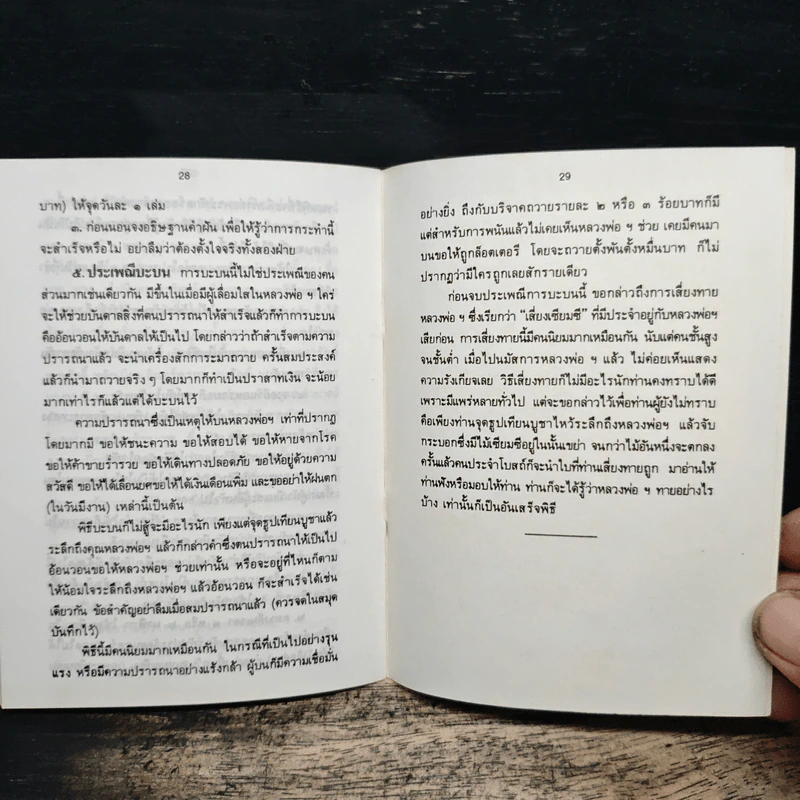 28
บาท) ให้จุดวันละ ๑ เล่ม
๓. ก่อนนอนจงอธิษฐานคำฝัน เพื่อให้รู้ว่าการกระทำนี้
จะสำเร็จหรือไม่ อย่าลืมว่าต้องตั้งใจจริงทั้งสองฝ่าย
๕. ประเพณีบะบน การบะบนนี้ไม่ใช่ประเพณีของคน
ส่วนมากเช่นเดียวกัน มีขึ้นในเมื่อมีผู้เลื่อมใสในหลวงพ่อ ฯ ใคร่
จะให้ช่วยบันดาลสิ่งที่ตนปรารถนาให้สำเร็จแล้วก็ทำการบะบน
คืออ้อนวอนให้บันดาลให้เป็นไป โดยกล่าวว่าถ้าสำเร็จตามความ
ปรารถนาแล้ว จะนำเครื่องสักการะมาถวาย ครั้นสมประสงค์
แล้วก็นำมาถวายจริง ๆ โดยมากก็ทำเป็นปราสาทเงิน จะน้อย
มากเท่าไรก็แล้วแต่ได้บะบนไว้
ความปรารถนาซึ่งเป็นเหตุให้บนหลวงพ่อฯ เท่าที่ปรากฏ
โดยมากมี ขอให้ชนะความ ขอให้สอบได้ ขอให้หายจากโรค
ขอให้ค้าขายร่ำรวย ขอให้เดินทางปลอดภัย ขอให้อยู่ด้วยความ
สวัสดี ขอให้ได้เลื่อนยศขอให้ได้เงินเดือนเพิ่ม และขออย่าให้ฝนตก
(ในวันมีงาน) เหล่านี้เป็นต้น
พิธีบะบนก็ไม่สู้จะมีอะไรนัก เพียงแต่จุดธูปเทียนบูชาแล้ว
ระลึกถึงคุณหลวงพ่อฯ แล้วก็กล่าวคำซึ่งตนปรารถนาให้เป็นไป
อ้อนวอนขอให้หลวงพ่อฯ ช่วยเท่านั้น หรือจะอยู่ที่ไหนก็ตาม
ให้น้อมใจระลึกถึงหลวงพ่อฯ แล้วอ้อนวอน ก็จะสำเร็จได้เช่น
เดียวกัน ข้อสำคัญอย่าลืมเมื่อสมปรารถนาแล้ว (ควรจดในสมุด
บันทึกไว้)
พิธีนี้มีคนนิยมมากเหมือนกัน ในกรณีที่เป็นไปอย่างรุน
แรง หรือมีความปรารถนาอย่างแรงกล้า ผู้บนก็มีความเชื่อมั่น
29
อย่างยิ่ง ถึงกับบริจาคถวายรายละ ๒ หรือ ๓ ร้อยบาทก็มี
แต่สำหรับการพนันแล้วไม่เคยเห็นหลวงพ่อ ฯ ช่วย เคยมีคนมา
บนขอให้ถูกล็อตเตอรี่ โดยจะถวายตั้งพันตั้งหมื่นบาท ก็ไม่
ปรากฏว่ามีใครถูกเลยสักรายเดียว
ก่อนจบประเพณีการบะบนนี้ ขอกล่าวถึงการเสี่ยงทาย
หลวงพ่อ ฯ ซึ่งเรียกว่า “เสี่ยงเซียมซี” ที่มีประจำอยู่กับหลวงพ่อฯ
เสียก่อน การเสี่ยงทายนี้มีคนนิยมมากเหมือนกัน นับแต่คนชั้นสูง
จนชั้นต่ำ เมื่อไปนมัสการหลวงพ่อ ฯ แล้ว ไม่ค่อยเห็นแสดง
ความรังเกียจเลย วิธีเสี่ยงทายก็ไม่มีอะไรนักท่านคงทราบได้ดี
เพราะมีแพร่หลายทั่วไป แต่จะขอกล่าวไว้เพื่อท่านผู้ยังไม่ทราบ
คือเพียงท่านจุดธูปเทียนบูชาไหว้ระลึกถึงหลวงพ่อ ฯ แล้วจับ
กระบอกซึ่งมีไม้เซียมซีอยู่ในนั้นเขย่า จนกว่าไม้อันหนึ่งจะตกลง
ครั้นแล้วคนประจำโบสถ์ก็จะนำใบที่ท่านเสี่ยงทายถูก มาอ่านให้
ท่านฟังหรือมอบให้ท่าน ท่านก็จะได้รู้ว่าหลวงพ่อ ฯ ทายอย่างไร
บ้าง เท่านั้นก็เป็นอันเสร็จพิธี